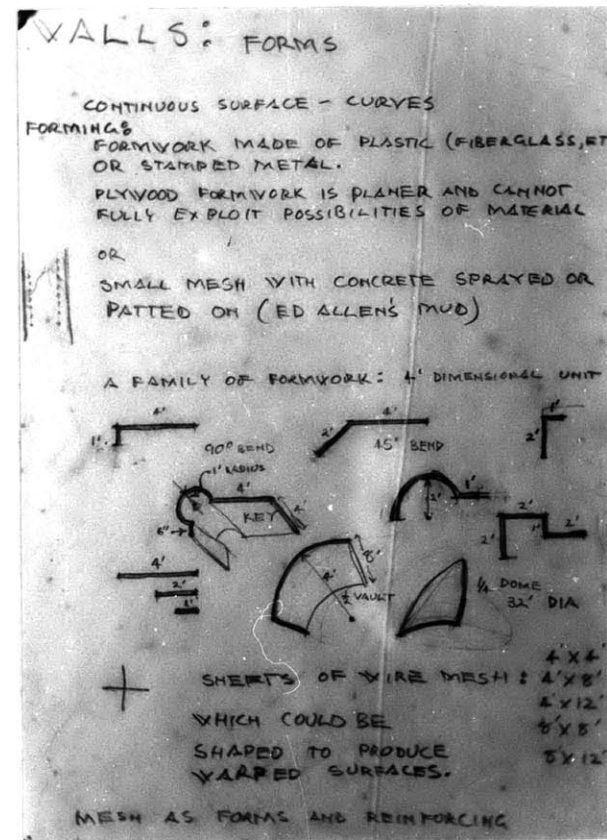 WALLS: FORMS
CONTINUOUS SURFACE – CURVES
FORMING:
FORMWORK MADE OF PLASTIC (FIBERGLASS, ET
OR STAMPED METAL.
PLYWOOD FORMWORK IS PLANER AND CANNOT
FULLY EXPLOIT POSSIBILITIES OF MATERIAL
OR
SMALL MESH WITH CONCRETE SPRAYED OR
PATTED ON (ED ALLEN'S MUD)
A FAMILY OF FORMWORK: 4' DIMENSIONAL UNIT
4'
1'
90° BEND
4'
2'
45° BEND
1'
2'
1' RADIUS
4'
4'
KEY
6"
2'
1'
2'
2'
1'
2'
4'
2'
1'
8'
4'
1/2 VAULT
1/4 DOME
32' DIA
SHEETS OF WIRE MESH: 4'X4'
4'X8'
4'X12'
WHICH COULD BE 8'X8'
SHAPED TO PRODUCE 8'X12'
WARPED SURFACES.
MESH AS FORMS AND REINFORCING